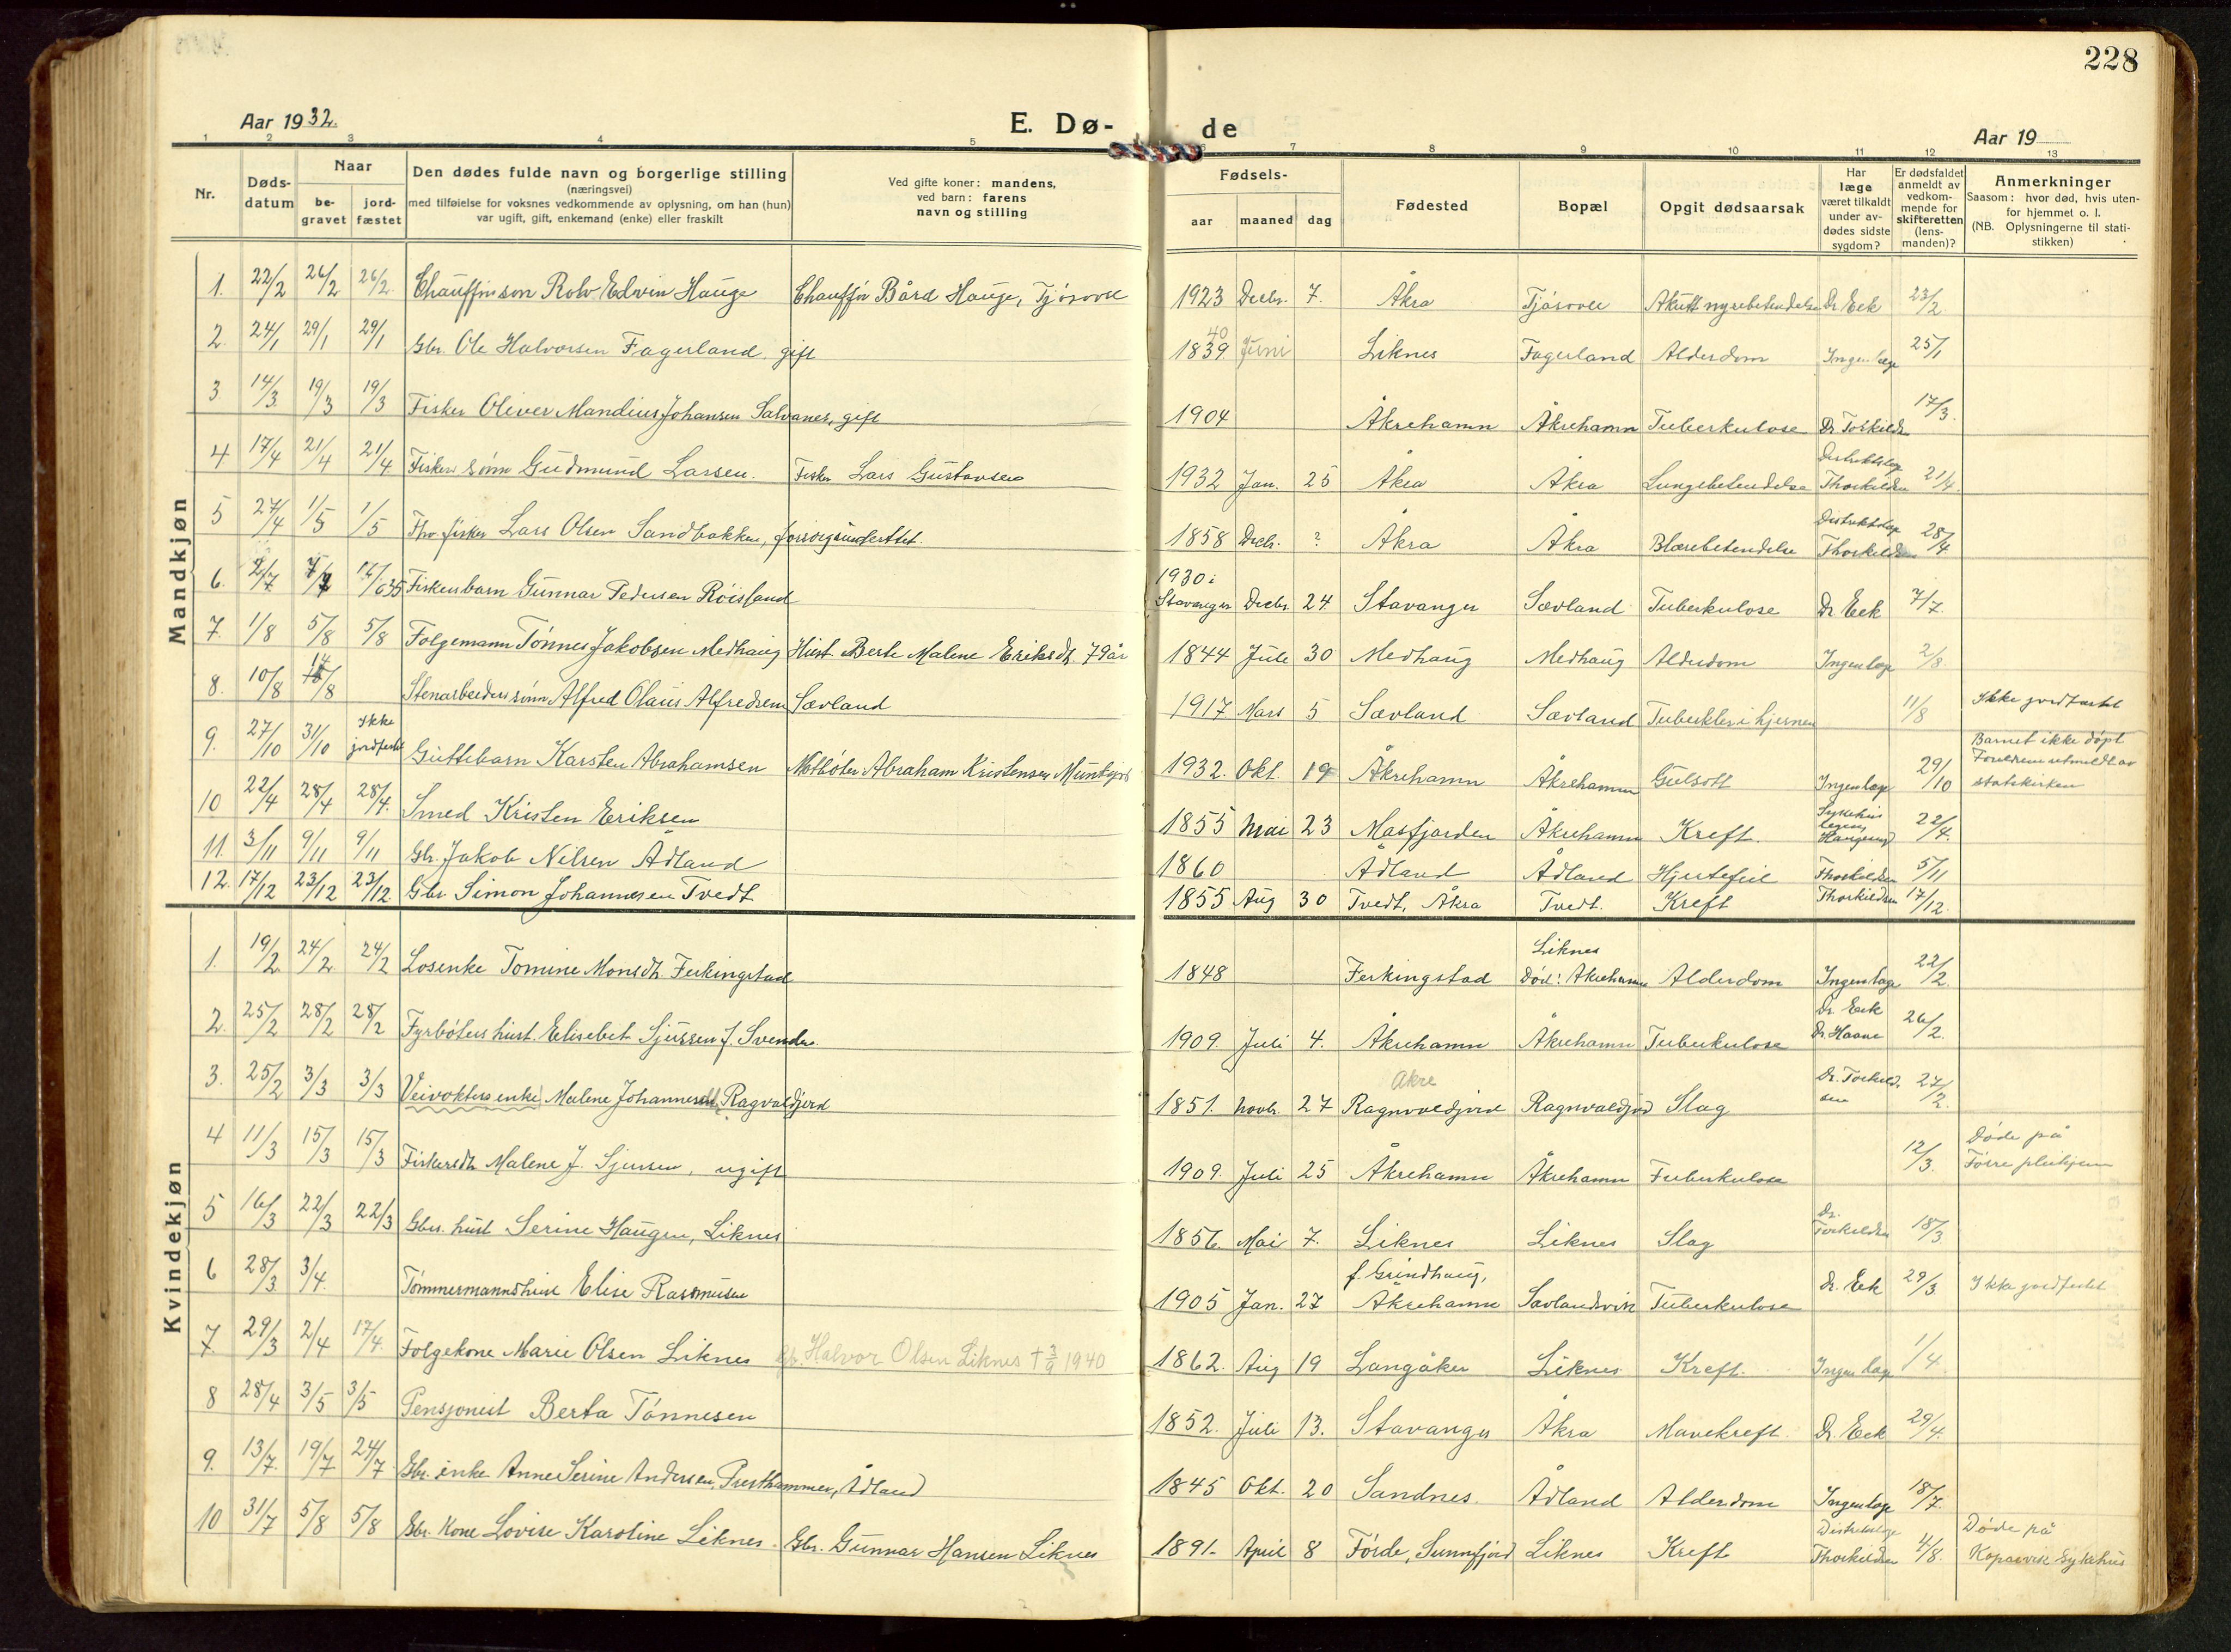 228
Aar 1932.
E. Dø- de
Aar 19
1 2 3 4 5 6 7 8 9 10 11 12 13
Nr.
Døds-
datum
Naar
be-
gravet
jord-
fæstet
Den dødes fulde navn og borgerlige stilling
(næringsvei)
med tilføielse for voksnes vedkommende av oplysning, om han (hun)
var ugift, gift, enkemand (enke) eller fraskilt
Ved gifte koner: mandens,
ved barn: farens
navn og stilling
Fødsels-
aar maaned dag
Fødested
Bopæl
Opgit dødsaarsak
Har
læge
været tilkaldt
under av-
dødes sidste
sygdom?
Er dødsfaldet
anmeldt av
vedkom-
mende for
skifteretten
(lens-
manden)?
Anmerkninger
Saasom: hvor død, hvis uten-
for hjemmet o. l.
(NB. Oplysningerne til stati-
stikken)
Mandkjøn
1. 22/2 26/2 26/2 Chaufførsøn Rolv Edvin Hauge Chauffør Bård Hauge, Tjøsvoll 1923 Decbr. 7. Åkra Tjøsvoll Akutt nyrebetendelse Dr. Eek 23/2
2. 24/1 29/1 29/1 Gbr. Ole Halvorsen Fagerland, gift 1839 40 Juni Liknes Fagerland Alderdom Ingen læge 25/1
3 14/3 19/3 19/3 Fisker Oliver Mandius Johansen Salvanes, gift 1904 Åkrehamn Åkrehamn Tuberkulose Dr. Torkilds 17/3.
4 17/4 21/4 21/4 Fiskers sønn Gudmund Larsen. Fisker Lars Gustavsen 1932 Jan. 25 Åkra Åkra Lungebetendelse Distriktslæge Thorkildsen 21/4.
5 27/4 1/5 1/5 Fhv. fisker Lars Olsen Sandbakken, forsorgsunderstøttet. 1858 Decbr. ? Åkra Åkra Blærebetendelse Distriktslæge Thorkildsen 28/4
6. 2/7 7/7 16/6 35 Fiskers barn Gunnar Pedersen Røisland 1930 i Stavanger Decbr. 24 Stavanger Sævland Tuberkulose Dr. Eek 7/7.
7. 1/8 5/8 5/8 Folgemann Tønnes Jakobsen Medhaug Hust. Berte Malene Eriksdt. 79 år 1844 Juli 30 Medhaug Medhaug Alderdom Ingen læge 2/8.
8. 10/8 14/8 Stenarbeiders sønn Alfred Olaus Alfredsen Sævland 1917 Mars 5 Sævland Sævland Tuberkler i hjernen 11/8 Ikke jordfæstet
9. 27/10 31/10 Ikke jordfestet Guttebarn Karsten Abrahamsen Notbøter Abraham Kristensen Munkejord 1932. Okt. 19 Åkrehamn Åkrehamn Gulsott Ingen læge 29/10 Barnet ikke døpt
Foreldrene utmeldt av
statskirken
10 22/4 28/4 28/4. Smed Kristen Eriksen 1855 Mai 23 Masfjorden Åkrehamn Kreft. Sykehus legen, Haugesund 22/4.
11. 3/11 9/11 9/11 Gbr. Jakob Nilsen Ådland 1860 Ådland Ådland Hjertefeil Thorkildsen 5/11
12. 17/12 23/12 23/12. Gbr Simon Johannesen Tvedt 1855 Aug 30 Tvedt, Åkra Tvedt. Kreft Thorkildsen 17/12.
Kvindekjøn
1. 19/2 24/2 24/2 Losenke Tomine Monsdtr. Ferkingstad 1848 Ferkingstad Liknes Død: Åkrehamn Alderdom Ingen læge 22/2.
2. 25/2 28/2 28/2 Fyrbøters hust. Elisebet Sjursen f. Svends. 1909. Juli 4. Åkrehamn Åkrehamn Tuberkulose Dr. Eek Dr. Haave 26/2.
3. 25/2 3/3 3/3 Veivokters enke Malene Johannesdt. Ragvaldjord 1851. Novbr. 27 Åkre Ragnvaldjord Ragnvaldjord Slag Dr. Torkildsen 27/2.
4 11/3 15/3 15/3 Fiskersdtr. Malene J. Sjursen, ugift 1909. Juli 25 Åkrehamn Åkrehamn Tuberkulose 12/3. Døde på
Førre pleiehjem
5 16/3 22/3 22/3 Gbrs. hust Serine Haugen, Liknes 1856. Mai 7. Liknes Liknes Slag Dr. Torkildsen 18/3
6 28/3 3/4. Tømmermannshust Elise Rasmussen 1905 Jan. 27 f. Grindhaug, Åkrehamn Sævlandsvik Tuberkulose Dr. Eek 29/3 Ikke jordfestet
7. 29/3 2/4 17/4. Folgekone Marie Olsen Liknes Gb. Halvor Olsen Liknes † 3/9 1940 1862. Aug 19 Langåker Liknes Kreft. Ingen læge 1/4.
8 28/4 3/5 3/5 Pensjonist Berta Tønnesen 1852. Juli 13. Stavanger Åkra Mavekreft. Dr. Eek 29/4.
9. 13/7. 19/7 24/7 Gbr. enke Anne Serine Andersen Presthammer, Ådland 1845 Okt. 20 Sandnes. Ådland Alderdom Ingen læge 18/7.
10 31/7 5/8 5/8 Gbr. Kone Lovise Karoline Liknes. Gbr. Gunnar Hansen Liknes 1891. April 8 Førde, Sunnfjord Liknes Kreft Distriktslæge Thorkildsen 4/8. Døde på
Kopervik Sykehus